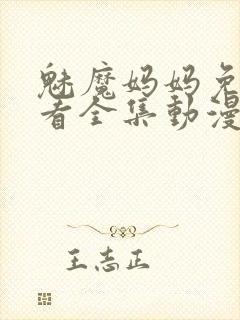 魅魔妈妈免
看全集動漫
王志正